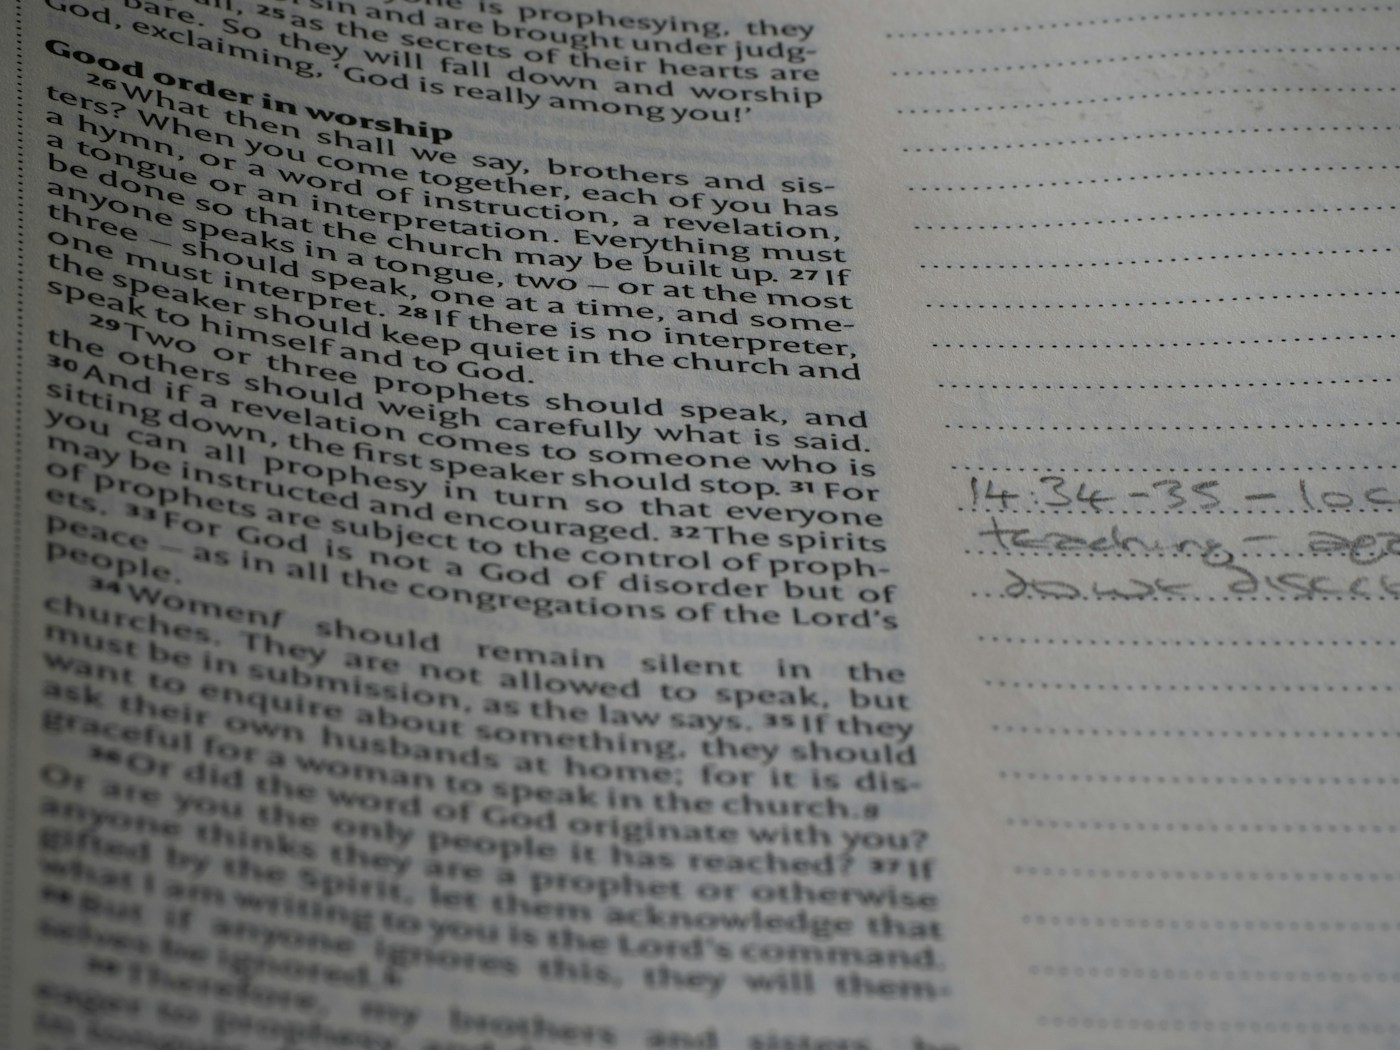 is prophesying, they
sin and are brought under judg-
all, 25 as the secrets of their hearts are
bare. So they will fall down and worship
God, exclaiming, ‘God is really among you!’
Good order in worship
26 What then shall we say, brothers and sis-
ters? When you come together, each of you has
a hymn, or a word of instruction, a revelation,
a tongue or an interpretation. Everything must
be done so that the church may be built up. 27 If
anyone speaks in a tongue, two – or at the most
three – should speak, one at a time, and some-
one must interpret. 28 If there is no interpreter,
the speaker should keep quiet in the church and
speak to himself and to God.
29 Two or three prophets should speak, and
the others should weigh carefully what is said.
30 And if a revelation comes to someone who is
sitting down, the first speaker should stop. 31 For
you can all prophesy in turn so that everyone
may be instructed and encouraged. 32 The spirits
of prophets are subject to the control of proph-
ets. 33 For God is not a God of disorder but of
peace – as in all the congregations of the Lord’s
people.
34 Women f should remain silent in the
churches. They are not allowed to speak, but
must be in submission, as the law says. 35 If they
want to enquire about something, they should
ask their own husbands at home; for it is dis-
graceful for a woman to speak in the church. g
36 Or did the word of God originate with you?
Or are you the only people it has reached? 37 If
anyone thinks they are a prophet or otherwise
gifted by the Spirit, let them acknowledge that
what I am writing to you is the Lord’s command.
38 But if anyone ignores this, they will them-
selves be ignored. h
39 Therefore, my brothers and sisters, be
eager to prophesy
14:34-35 – loc
teaching –